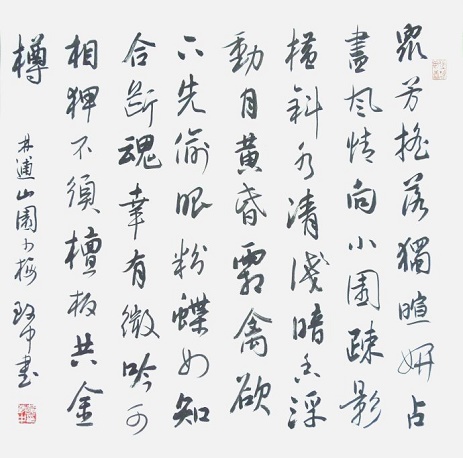 眾芳搖落獨暄妍占
盡風情向小園疎影
橫斜水清淺暗香浮
動月黃昏霜禽欲
下先偷眼粉蝶如知
合斷魂幸有微吟可
相狎不須檀板共金
樽
林逋山園小梅 中書